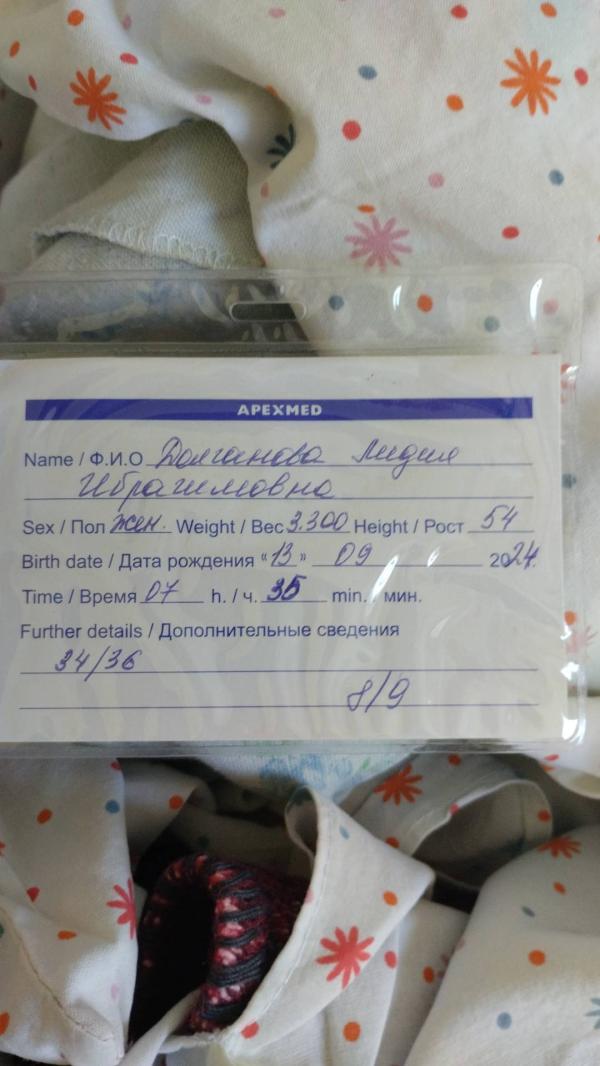 APEXMED
Name / Ф.И.О Долганова Лидия
Ибрагимовна
Sex / Пол жен. Weight / Вес 3.300 Height / Рост 54
Birth date / Дата рождения «13» 09 2024.
Time / Время 07 h. / ч. 35 min. / мин.
Further details / Дополнительные сведения
34/36
8/9